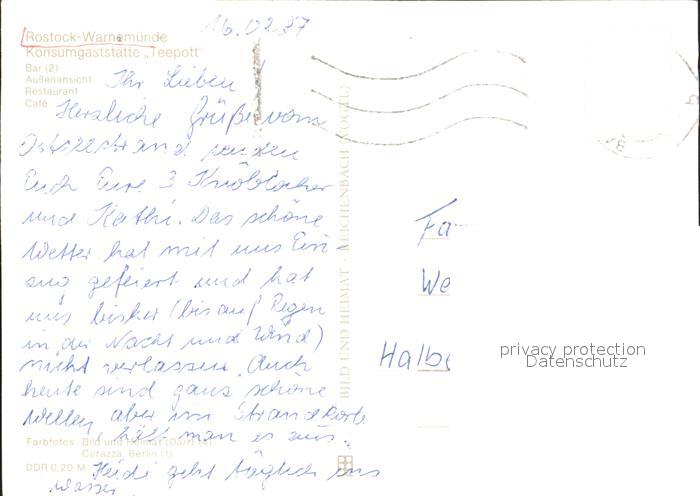 16.02.87
Rostock-Warnemünde
Konsumgaststätte „Teepott"
Bar (2)
Außenansicht
Restaurant
Café
Ihr Lieben!
Herzliche Grüße vom
Ostseestrand senden
Euch Eure 3 Knöblocher
und Kathi. Das schöne
Wetter hat mit uns Ein-
zug gefeiert und hat
uns bisher (bis auf Regen
in der Nacht und Wind)
nicht verlassen. Auch
heute sind ganz schöne
Wellen, aber im Strandkorb
hält man es aus.
Heidi geht täglich ins
Wasser.
Farbfotos: Bild und Heimat
Corazza, Berlin (1)
DDR 0,20 M
BILD UND HEIMAT · REICHENBACH (VOGTL)
Fa
We
Halbe
privacy protection
Datenschutz